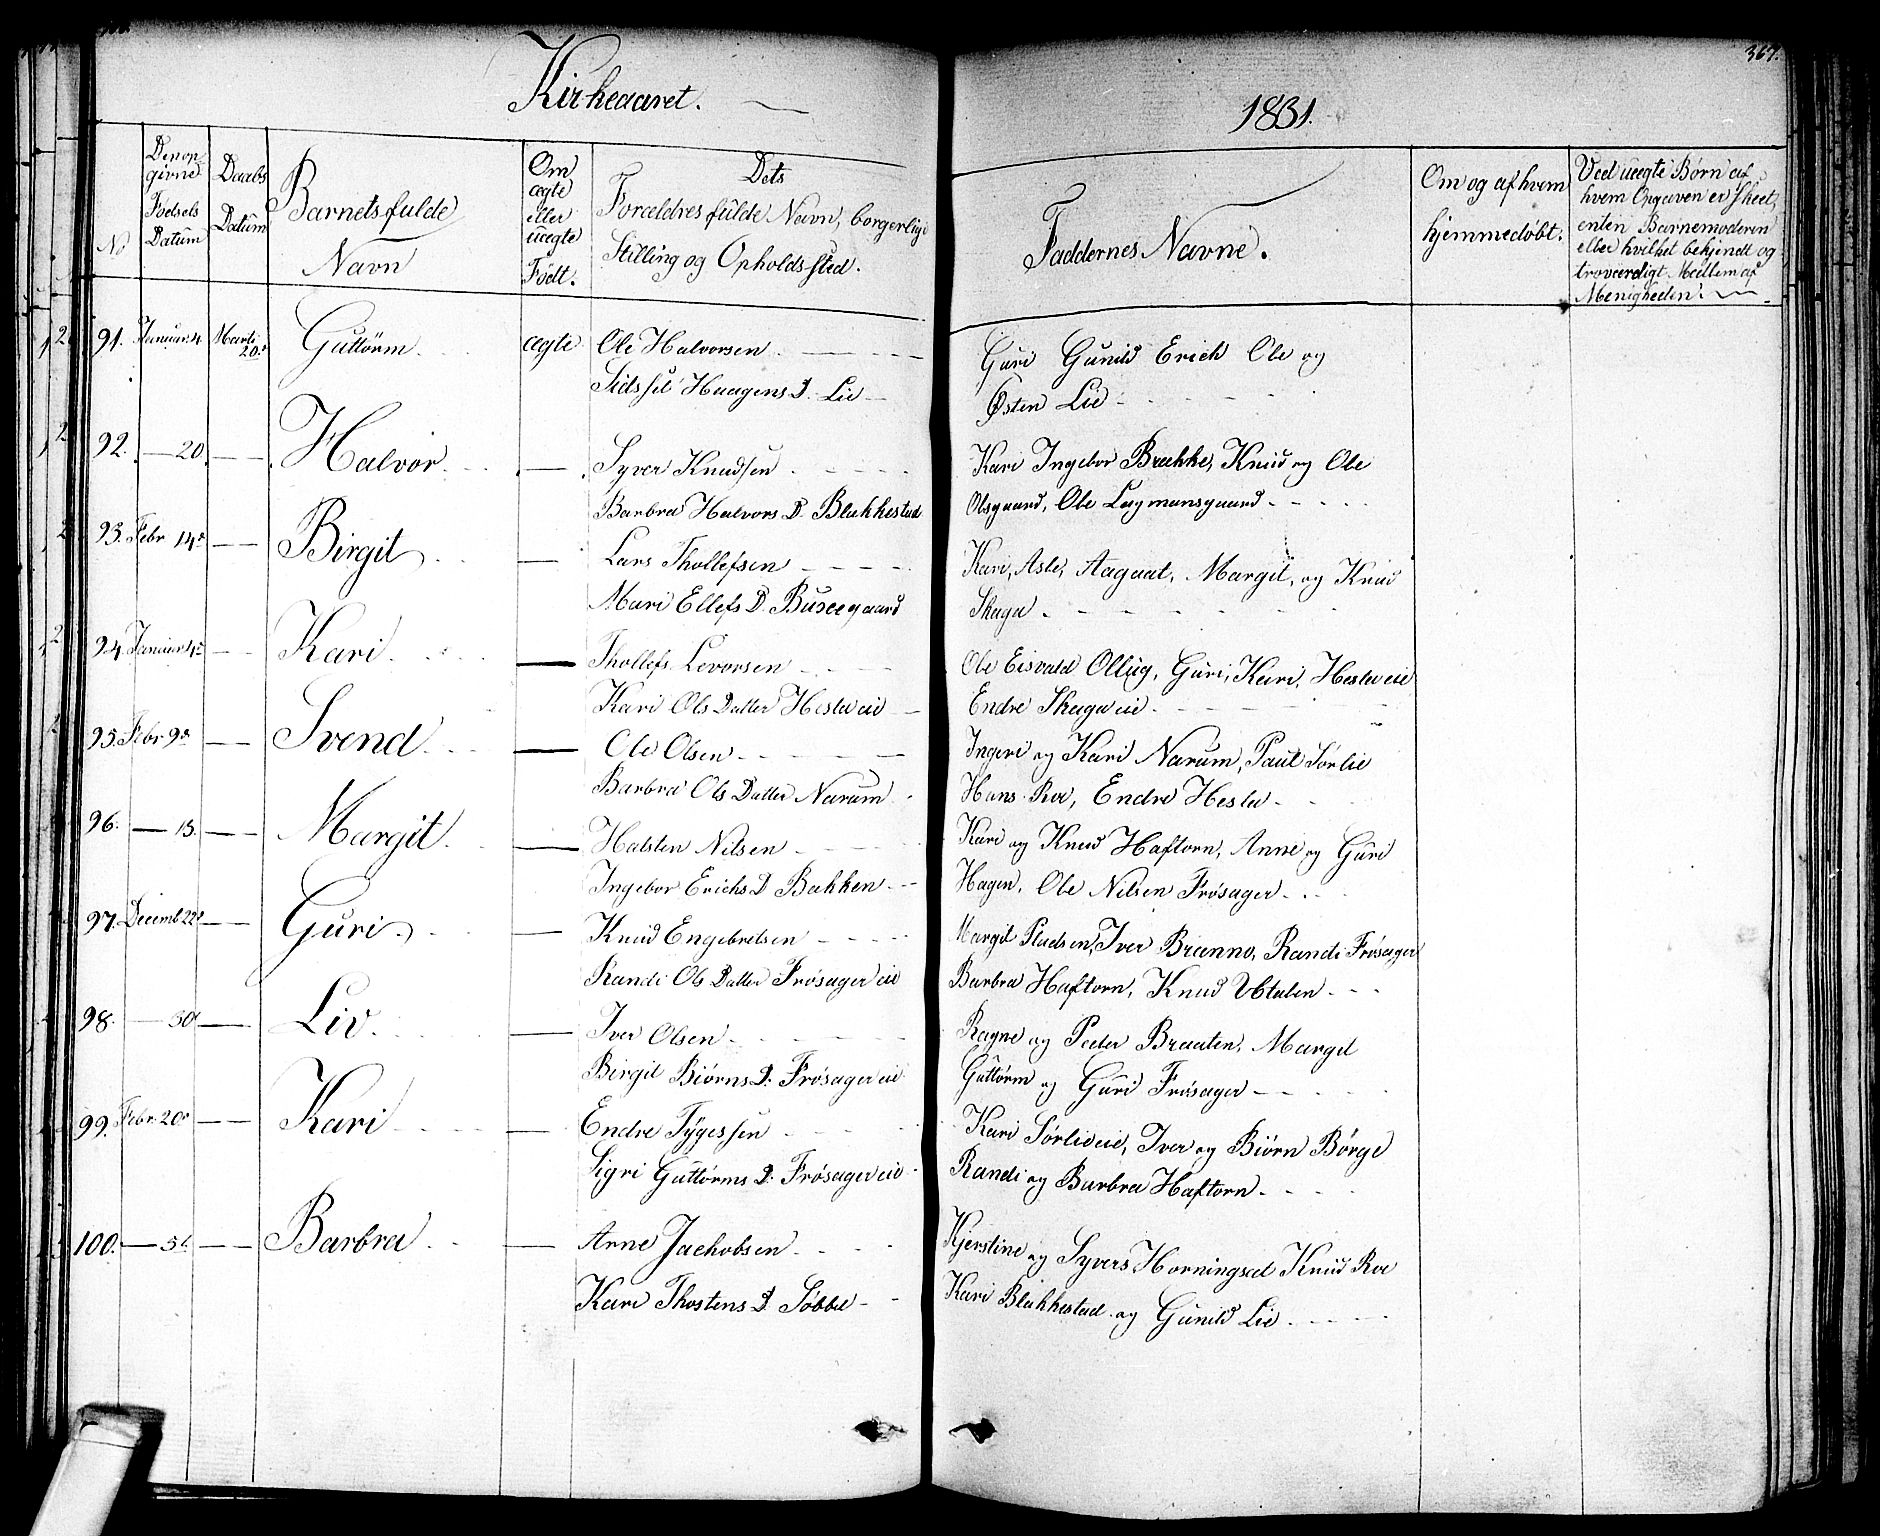 Kirkeaaret.
1831.
367.
No
Den op-
givne
Fødsels
Datum
Daabs
Datum
Barnets fulde
Navn
Om
ægte
eller
uægte
Født.
Dets
Forældres fulde Navn, borgerlige
Stilling og Opholds-sted.
Faddernes Navne.
Om og af hvem
hjemmedøbt.
Ved uægte Børn af
hvem Opgaven er skeet,
enten Barnemoderen
eller hvilket bekjendt og
troværdigt Medlem af
Menigheden.
91. Januar 4 Marti 20de Guttorm. ægte Ole Halvorsen
Sidssel Haagens D. Lie
Guri Gunild Erich Ole og
Østen Lie
92. — 20 — Halvor. — Syver Knudsen
Barbra Halvors D. Blakkestad
Kari Ingebor Brekke, Knud og Ole
Olsgaard, Ole Lagmansgaard
93. Febr 14de — Birgit — Lars Thollefsen
Mari Ellefs D. Buseegaard
Kari, Asle, Aagaat, Margit, og Knud
Skaga
94. Januar 4de — Kari. — Thollefs Levorsen
Kari Ols Datter Hesla eie
Ole Eisvald Ollug, Guri, Kari, Hesla eie
Endre Skaga eie
95. Febr 9de — Svend. — Ole Olsen
Barbra Ols Datter Narum
Ingeri og Kari Narum, Paul Sørlie
Hans Roe, Endre Hesla
96. — 15. — Margit. — Halsten Nilsen
Ingebor Erichs D. Bakken
Kari og Knud Haftorn, Anne og Guri
Hagen, Ole Nilsen Frøsager
97. Decemb 22de — Guri — Knud Engebretsen
Randi Ols Datter Frøsager eie
Margit Pladsen, Iver Brenno, Randi Frøsager
Barbra Haftorn, Knud
98. — 30 — Liv. — Iver Olsen
Birgit Biørns D. Frøsager eie
Ragne og Peder Braaten, Margit
Guttorm og Guri Frøsager
99. Febr. 20de — Kari — Endre Tygessen
Sigri Guttorms D. Frøsager eie
Kari Sørlie eie, Iver og Biørn Børge
Randi og Barbra Haftorn
100. — — Barbra — Arne Jachobsen
Kari Thostens D. Søbbel
Kjerstine og Syvers Horningsed Knud Roe
Kari Blakkestad og Gunild Lie